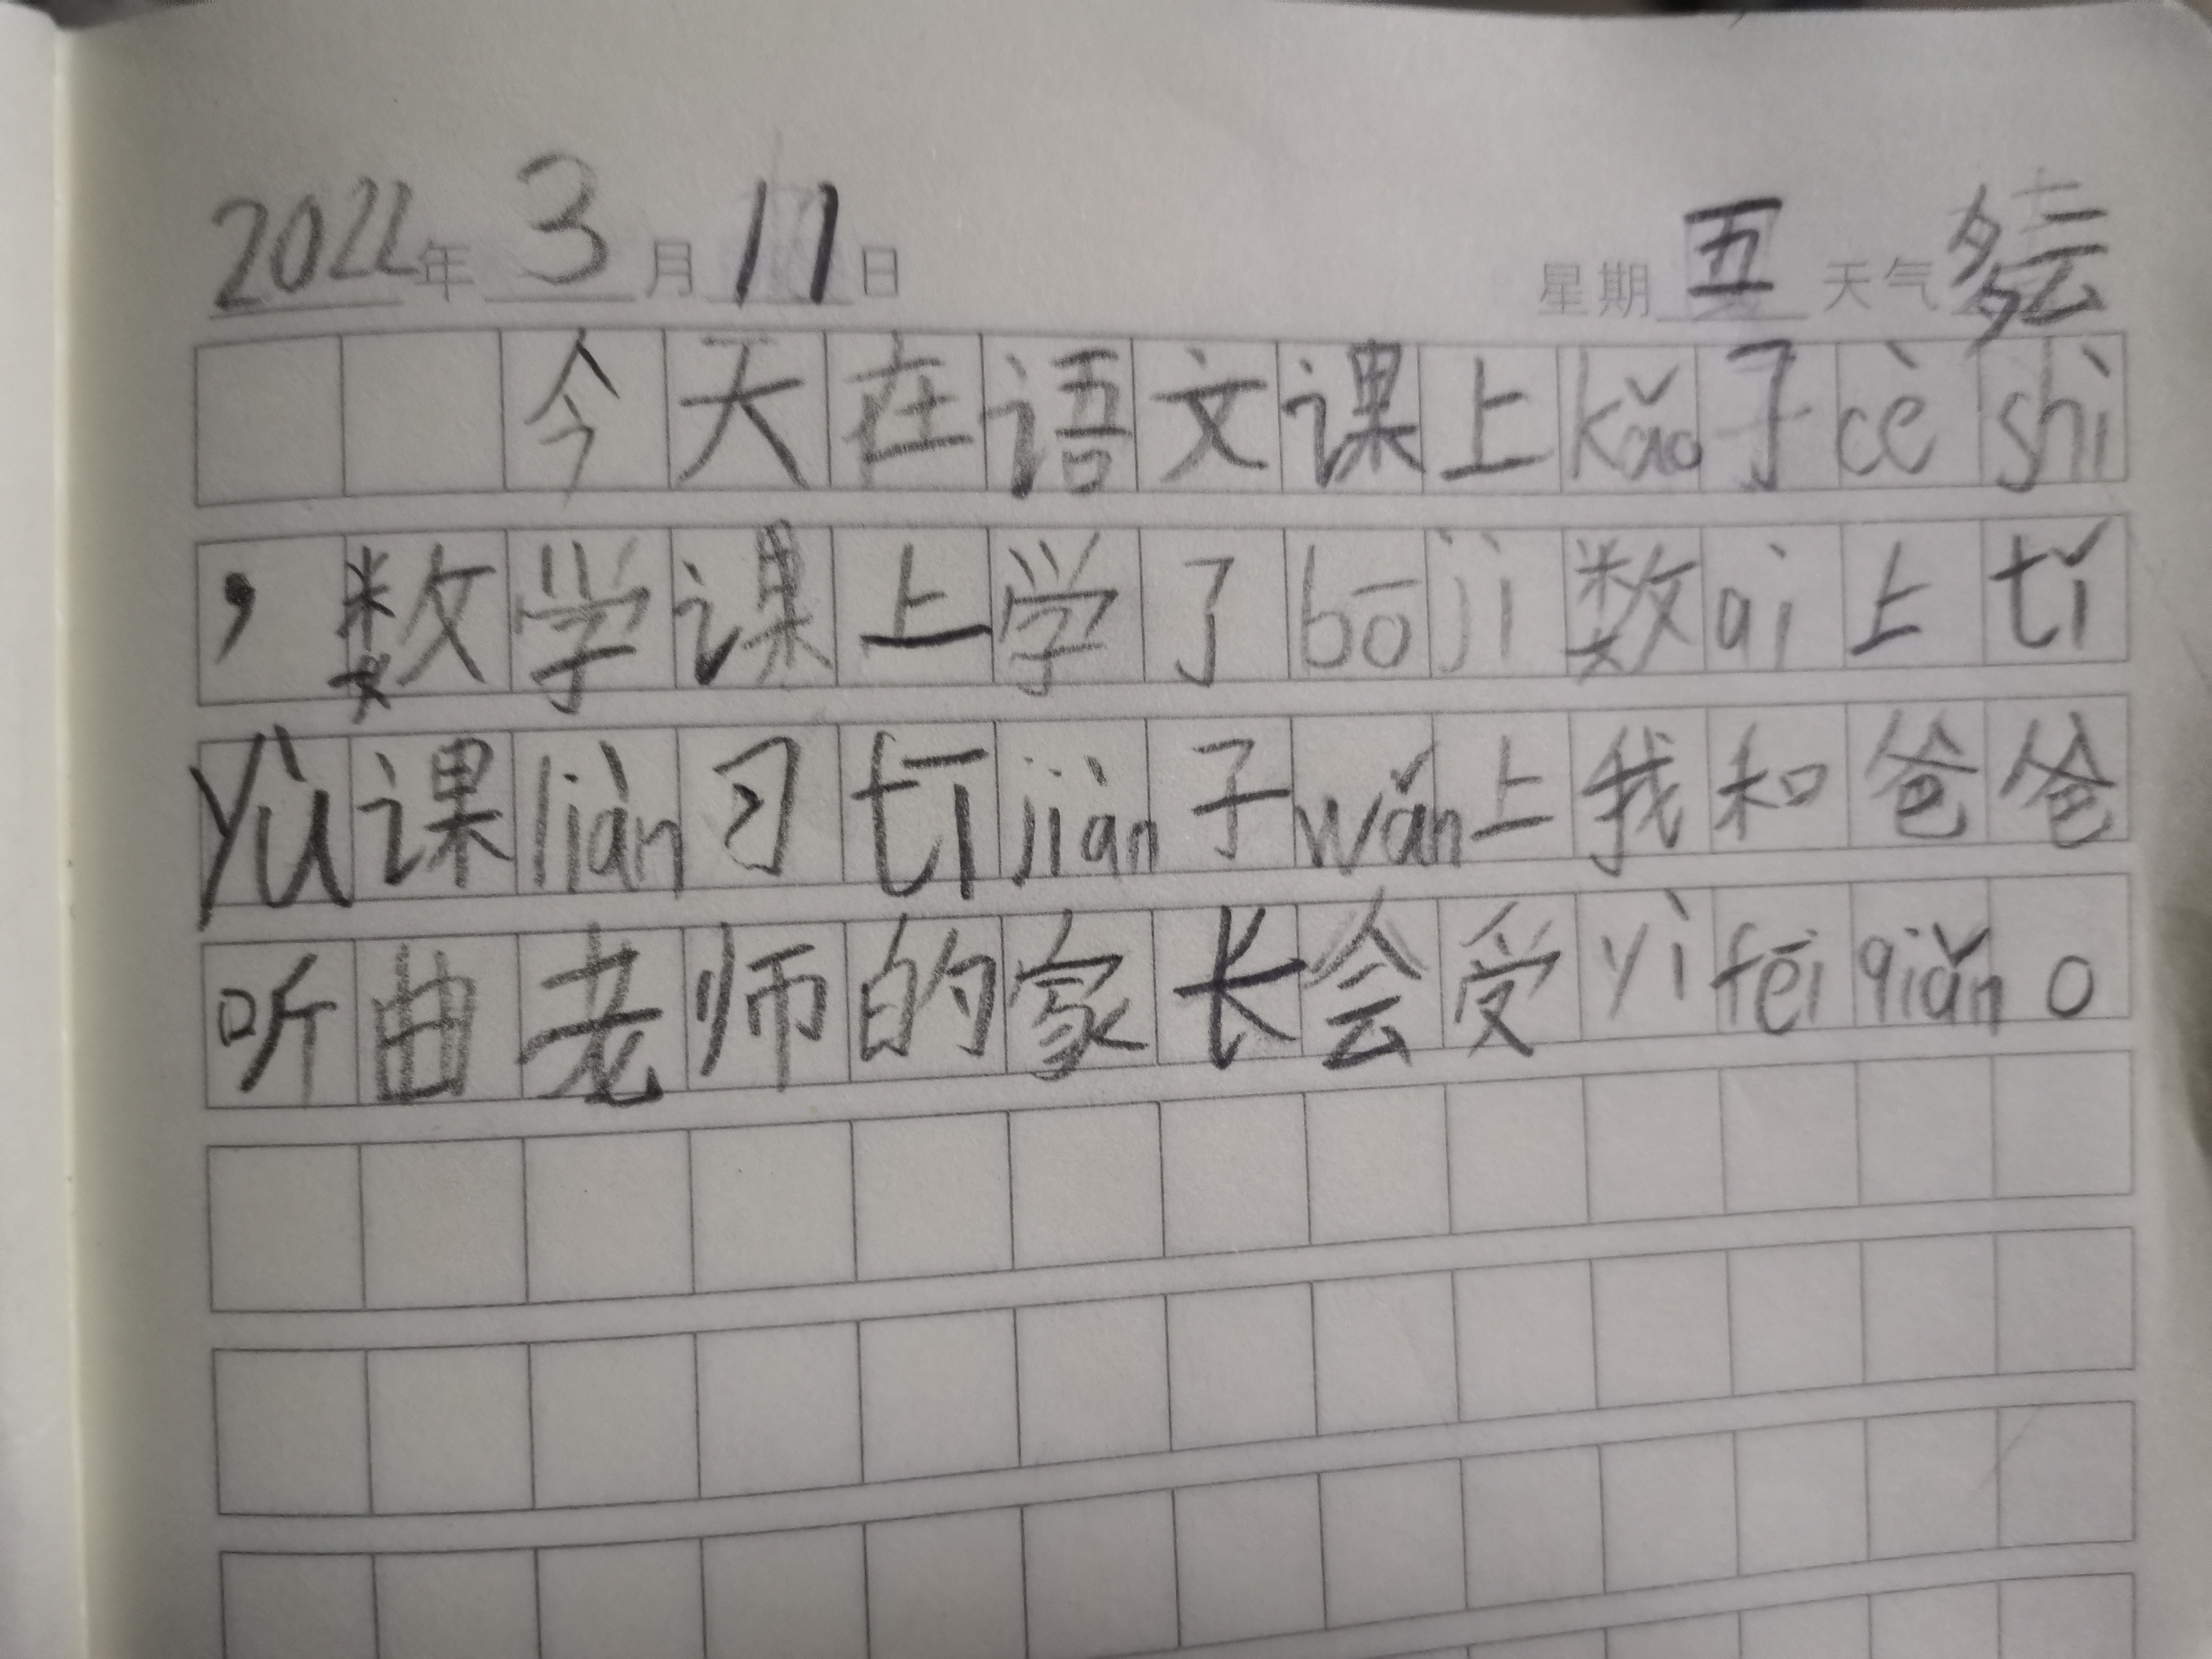 2022年3月11日 星期五 天气多云
今天在语文课上kǎo了cè shì
，数学课上学了bō ji数ai上tǐ
yù课liàn习tī jiàn子wǎn上我和爸爸
听曲老师的家长会受yì fēi qiǎn。